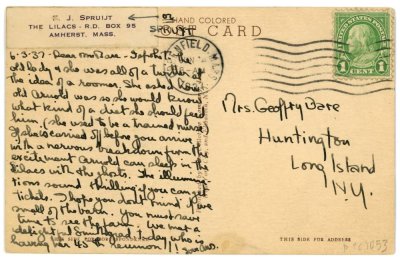 E. J. SPRUIJT
THE LILACS - R.D. BOX 95
AMHERST, MASS.
or
HAND COLORED
POST CARD
6-3-37- Dear Mrs Dare- I spoke to the
old lady & she was all of a twitter at
the idea of a roomer. She asked how
old Arnold was so she would know
what kind of a diet she should feed
him, (she used to be a trained nurse)
If she is carried off before you arrive
with a nervous breakdown from the
excitement Arnold can sleep in the
Lilacs with the ghosts. The illumina-
tions sound thrilling if you can get
tickets. I hope you don't mind the
smell of the barn. You must save
time to see the We met a
delightful day who is
having her 15th Reunion!!!
Mrs. Geoffry Dare
Huntington
Long Island
N.Y.
UNITED STATES POSTAGE
1 CENT 1
THIS SIDE FOR
THIS SIDE FOR ADDRESS